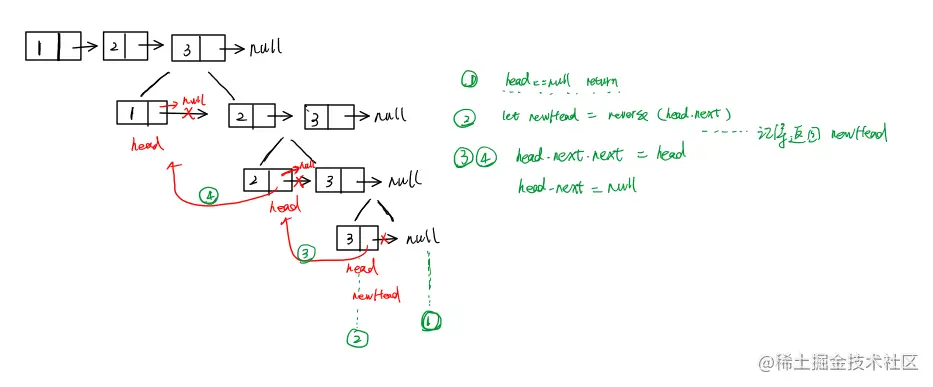 1 2 3 null
1 null 2 3 null
head
2 null 3 null
④ head
3 null
③ head
newHead
② ①
① head==null return
② let newHead = reverse (head.next)
记得返回 newHead
③④ head.next.next = head
head.next = null
@稀土掘金技术社区